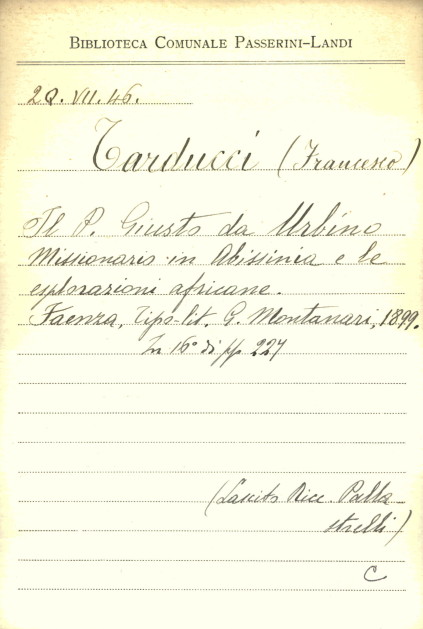 BIBLIOTECA COMUNALE PASSERINI-LANDI
2Q.VII.46.
Tarducci (Francesco)
Il P. Giusto da Urbino
Missionario in Abissinia e le
esplorazioni africane.
Faenza, Tipo-lit. G. Montanari, 1899.
In 16° di pp 227
(Lascito Ricc. Palla-
strelli)
C